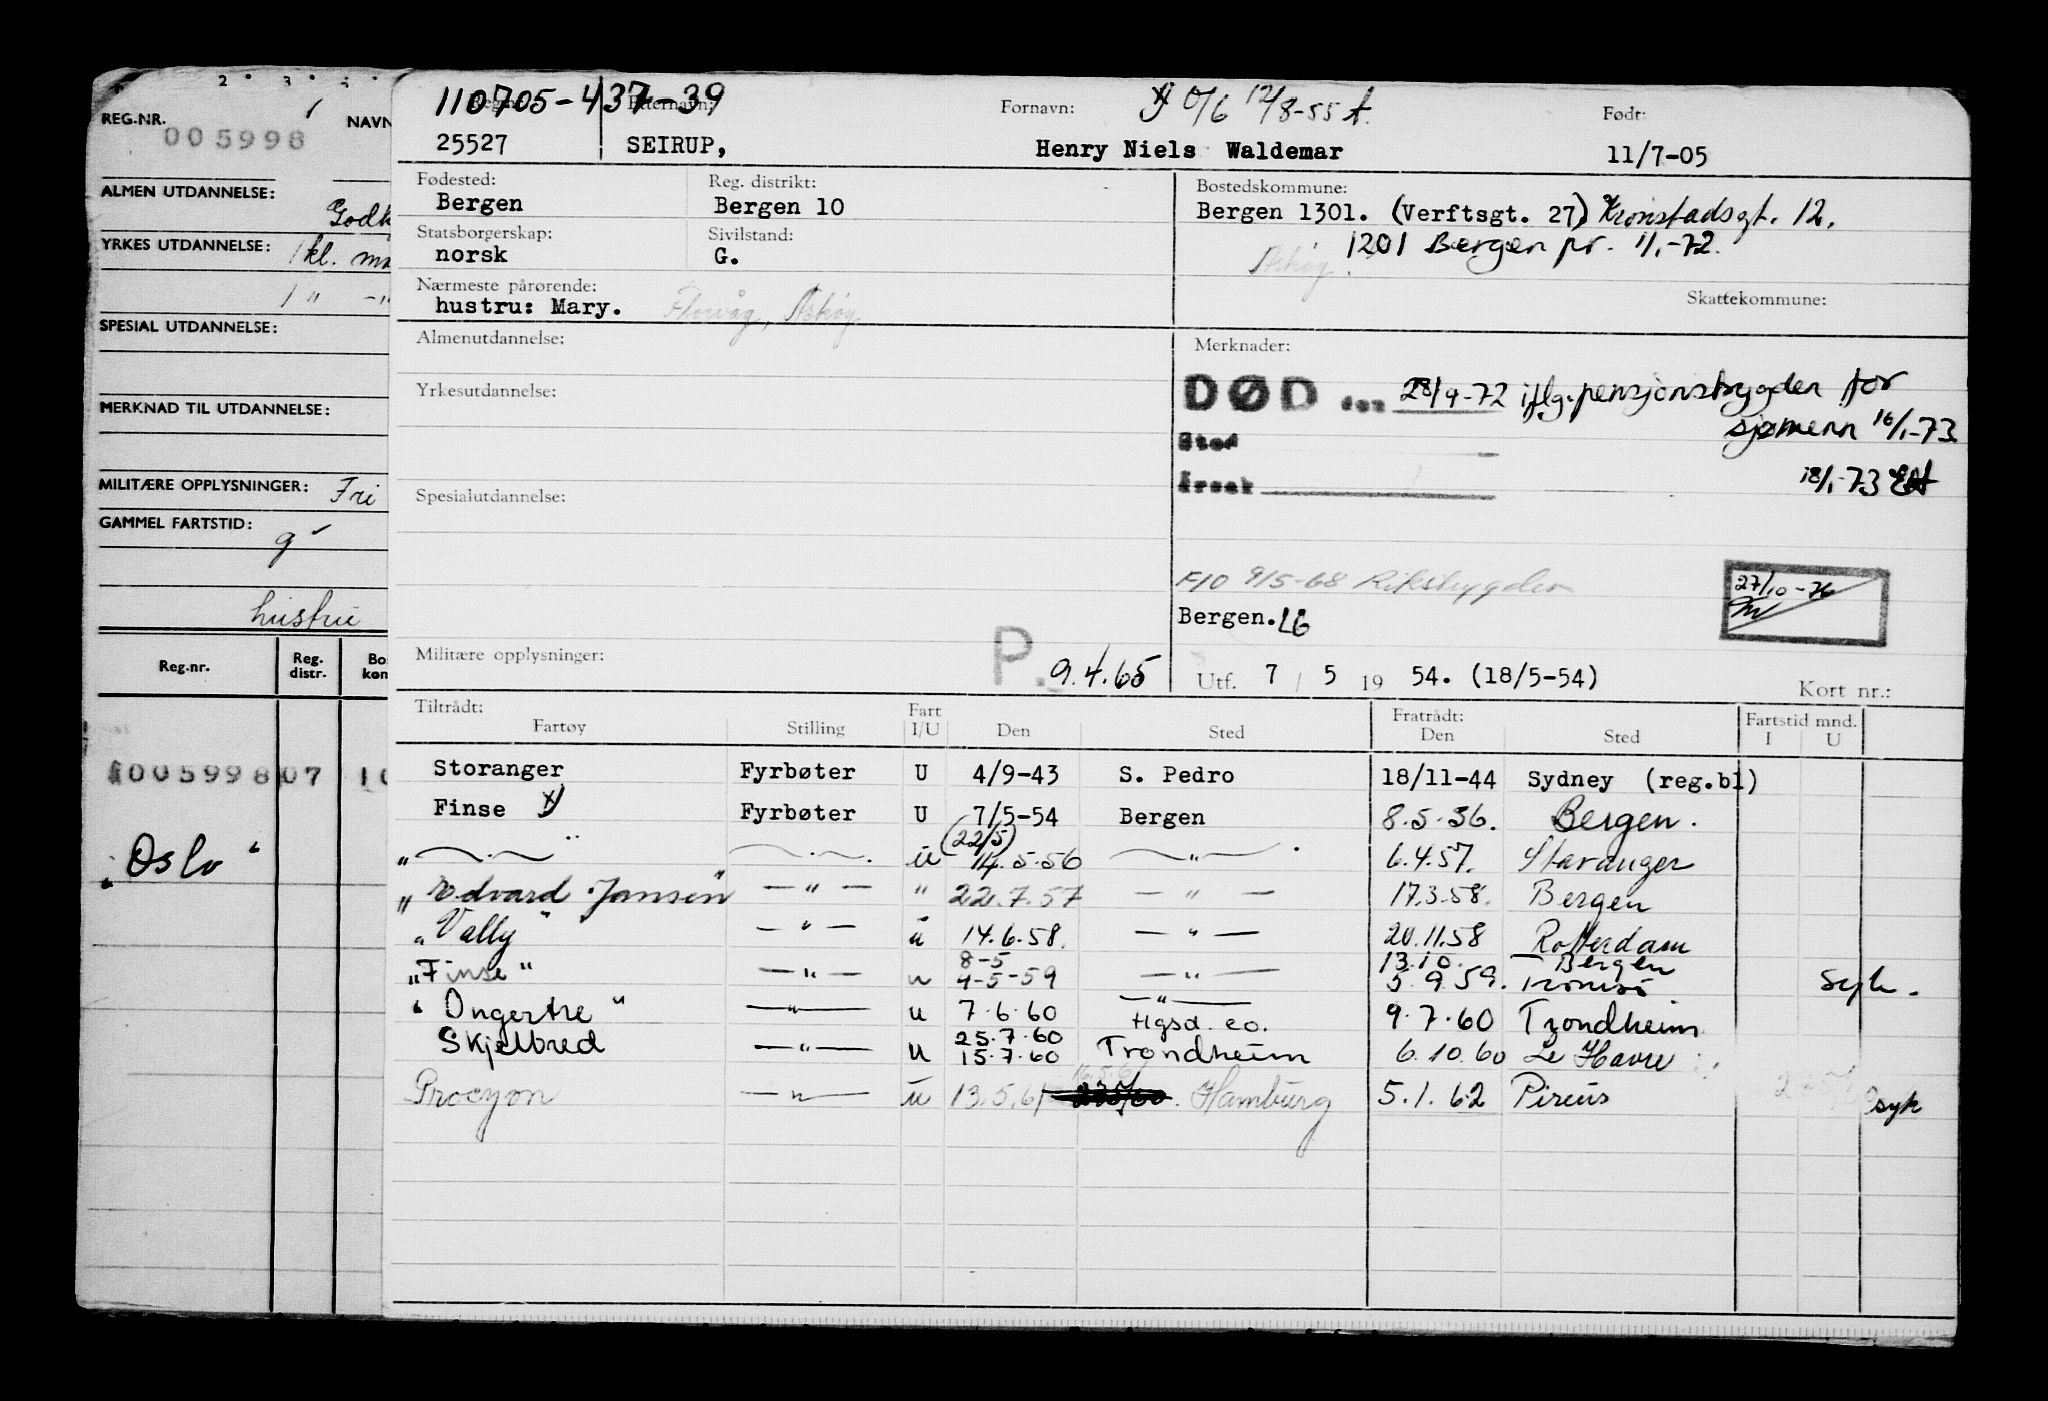 2 3 4
REG.NR. 005998
NAVN
ALMEN UTDANNELSE:
Godk
YRKES UTDANNELSE: 1 kl. ma
1 " -"
SPESIAL UTDANNELSE:
MERKNAD TIL UTDANNELSE:
MILITÆRE OPPLYSNINGER: Fri
GAMMEL FARTSTID:
g
hustru
Reg.nr. Reg. distr. Bo. kon
005998 07 10
"Oslo"
110705-437-39
Etternavn: Fornavn: x) 0/6 12/8-55 A. Født:
25527 SEIRUP, Henry Niels Waldemar 11/7-05
Fødested: Reg. distrikt: Bostedskommune:
Bergen Bergen 10 Bergen 1301. (Verftsgt. 27) Kronstadsgt. 12.
Statsborgerskap: Sivilstand: 1201 Bergen pr. 1/1-72.
norsk G. Askøy.
Nærmeste pårørende: Skattekommune:
hustru: Mary. Florvåg, Askøy
Almenutdannelse: Merknader:
Yrkesutdannelse: DØD den 28/9-72 iflg. pensjonstrygden for
sjømenn 16/1-73
Sted
Årsak 18/1-73 EA
Spesialutdannelse:
F10 9/5-68 Rikstrygden
27/10-76
Bergen. LG
Militære opplysninger: P. 9.4.65 Utf. 7 / 5 19 54. (18/5-54) Kort nr.:
Tiltrådt: Fart Fratrådt: Fartstid mnd.
Fartøy Stilling I/U Den Sted Den Sted I U
Storanger Fyrbøter U 4/9-43 S. Pedro 18/11-44 Sydney (reg.bl)
Finse x) Fyrbøter U 7/5-54 Bergen 8.5.56. Bergen.
(22/5)
" — " — — " — ü 14.5.56 — " — 6.4.57. Stavanger
"Edvard Jansen" — " — " 22.7.57 — " — 17.3.58. Bergen
"Vally" — " — ü 14.6.58. — " — 20.11.58 Rotterdam
8-5 13.10. Bergen
"Finse" — " — u 4-5-59 — " — 5.9.59. Tromsø syk.
"Ingertre" — " — u 7.6.60 — " — 9.7.60 Trondheim
25.7.60 Hgsd. co.
Skjelbred — " — u 15.7.60 Trondheim 6.10.60 Le Havre
Procyon — " — ü 13.5.61 Hamburg 5.1.62 Pireus syk